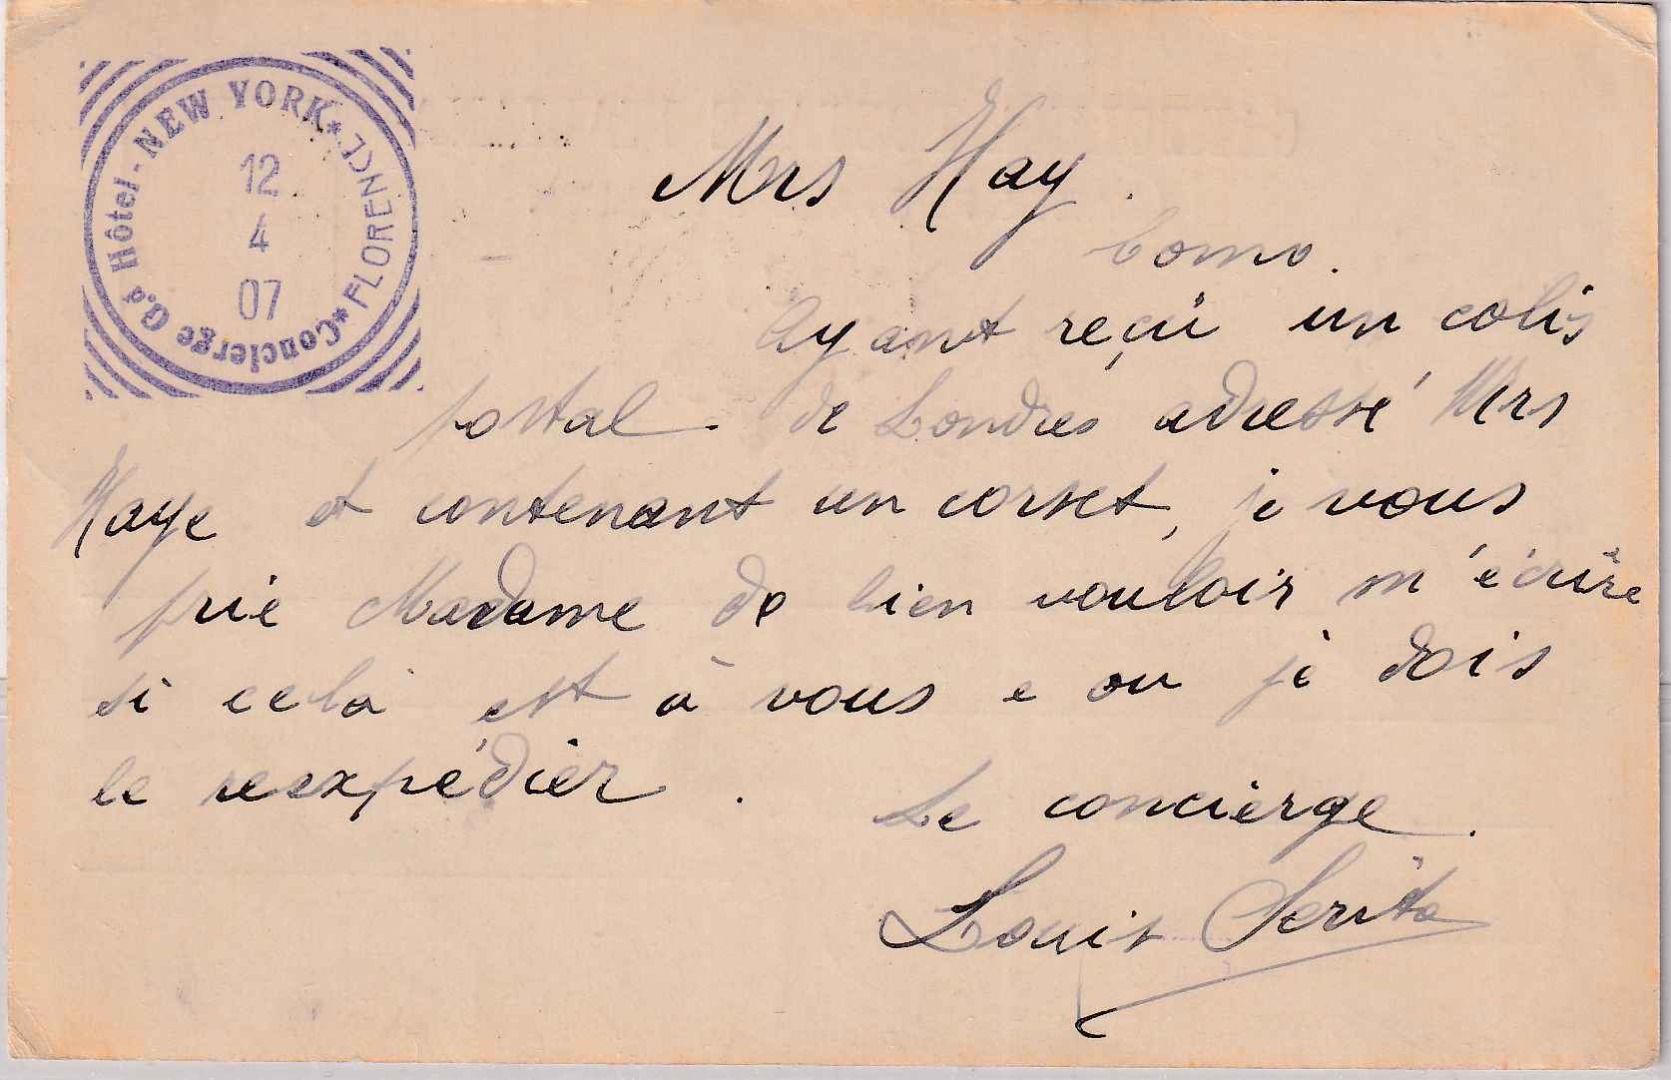 Concierge G.d Hôtel - NEW YORK * FLORENCE *
12
4
07
Mrs Hay.
Como.
Ayant reçu un colis
postal. de Londres adressé Mrs
Haye et contenant un corset, je vous
prie Madame de bien vouloir m'écrire
si celà est à vous e ou je dois
le reexpédier.
Le concierge.
Louis